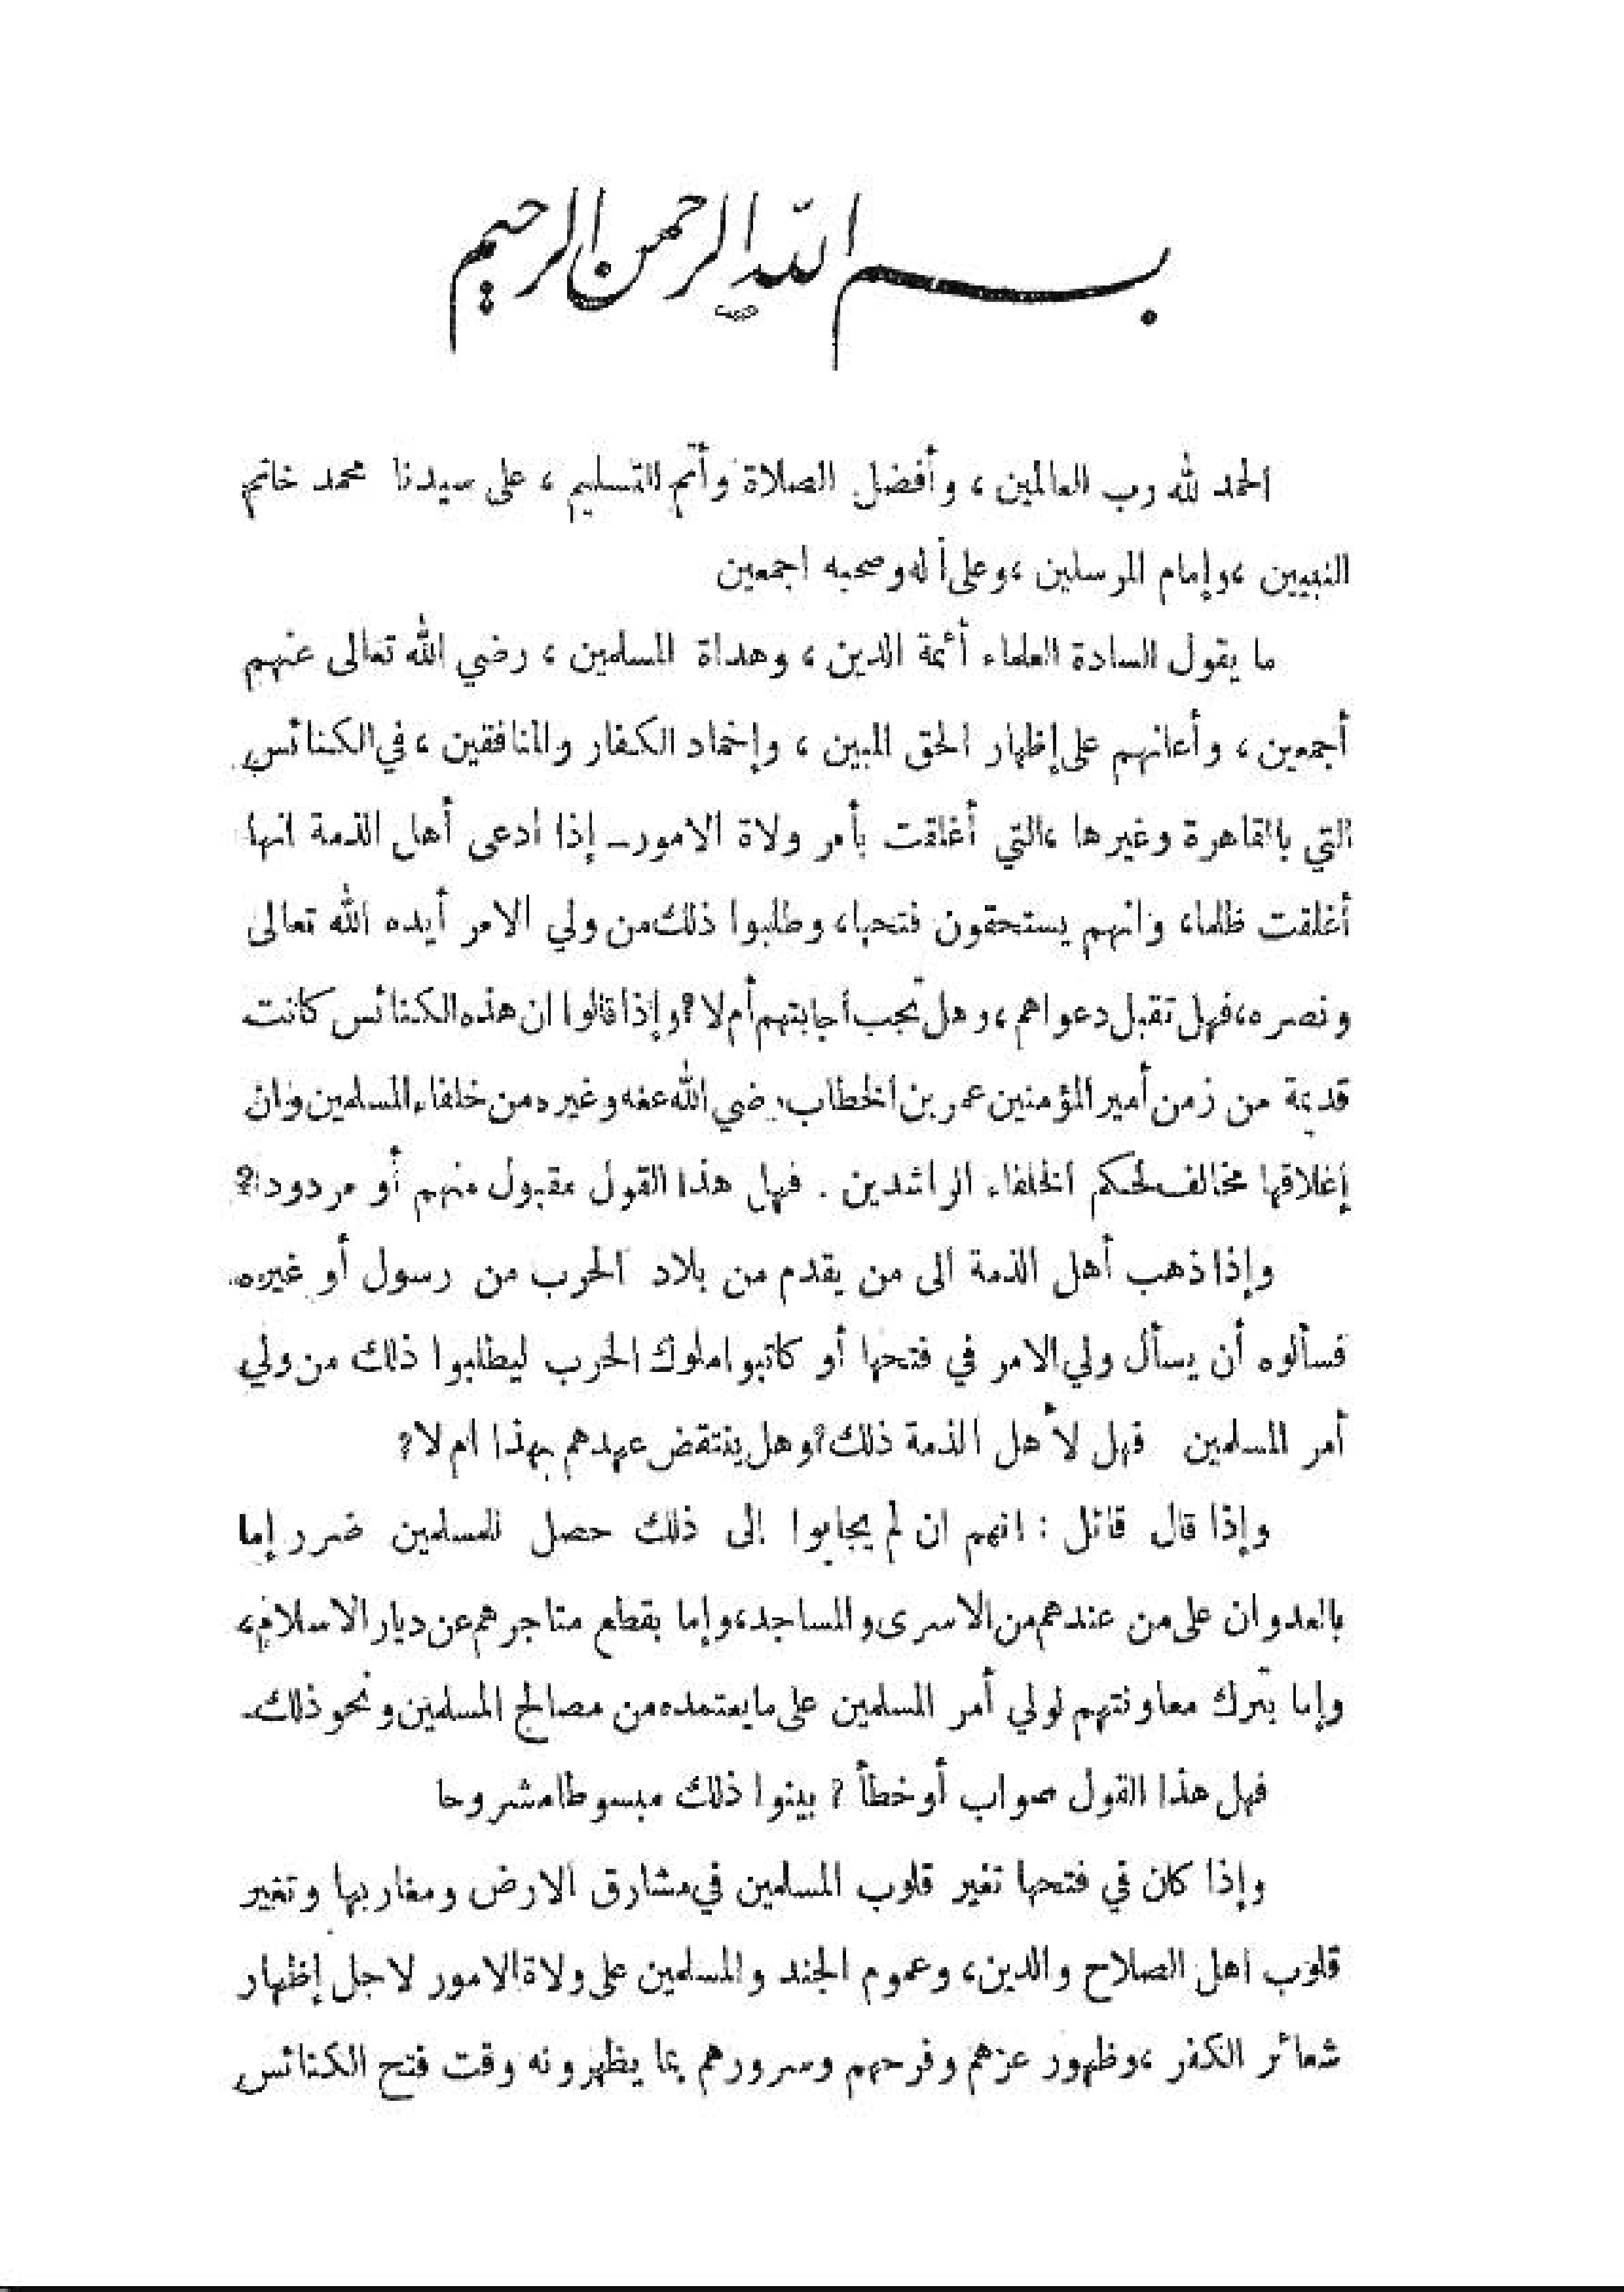 بسم الله الرحمن الرحيم
الحمد لله رب العالمين ، وأفضل الصلاة وأتم التسليم ، على سيدنا محمد خاتم
النبيين ،وإمام المرسلين ،وعلى أله وصحبه اجمعين
ما يقول السادة العلماء أئمة الدين ، وهداة المسلمين ، رضي الله تعالى عنهم
أجمعين ، وأعانهم على إظهار الحق المبين ، وإخماد الكفار والمنافقين ، في الكنائس
التي بالقاهرة وغيرها ،التي أغلقت بأمر ولاة الامور ـ إذا ادعى أهل الذمة انها
أغلقت ظلما، وانهم يستحقون فتحها، وطلبوا ذلك من ولي الامر أيده الله تعالى
ونصره،فهل تقبل دعواهم ،وهل تجب أجابتهم أم لا؟وإذا قالوا ان هذه الكنائس كانت
قديمة من زمن أمير المؤمنين عمر بن الخطاب رضي الله عنه وغيره من خلفاء المسلمين وان
إغلاقها مخالف لحكم الخلفاء الراشدين . فهل هذا القول مقبول منهم أو مردود؟
وإذا ذهب أهل الذمة الى من يقدم من بلاد الحرب من رسول أو غيره
فسألوه أن يسأل ولي الامر في فتحها أو كاتبوا ملوك الحرب ليطلبوا ذلك من ولي
أمر المسلمين فهل لأهل الذمة ذلك؟وهل ينتقض عهدهم بهذا ام لا؟
وإذا قال قائل : انهم ان لم يجابوا إلى ذلك حصل للمسلمين ضرر إما
بالعدوان على من عندهم من الاسرى والمساجد،وإما بقطع متاجرهم عن ديار الاسلام،
وإما بترك معاونتهم لولي أمر المسلمين على ما يعتمده من مصالح المسلمين ونحو ذلك.
فهل هذا القول صواب أو خطأ ؟ بينوا ذلك مبسوطا مشروحا
وإذا كان في فتحها تغير قلوب المسلمين في مشارق الارض ومغاربها وتغير
قلوب اهل الصلاح والدين، وعموم الجند والمسلمين على ولاة الامور لاجل إظهار
شعائر الكفر ،وظهور عزهم وفرحهم وسرورهم بما يظهرونه وقت فتح الكنائس